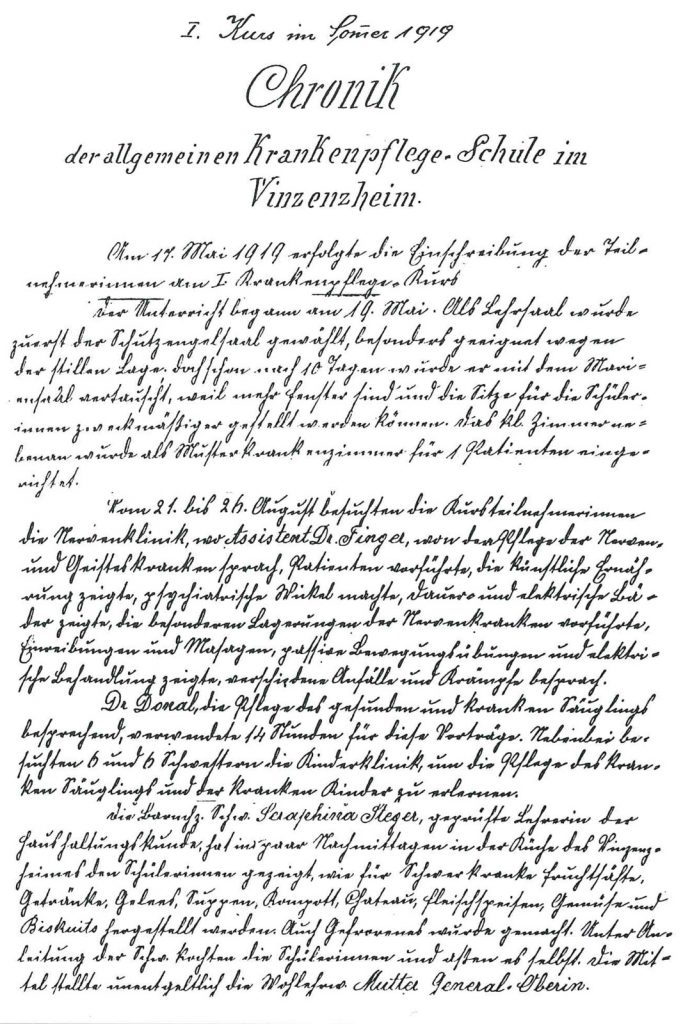 I. Kurs im Som̅er 1919
Chronik
der allgemeinen Krankenpflege-Schule im
Vinzenzheim.
Am 17. Mai 1919 erfolgte die Einschreibung der Teil-
nehmerinnen am I Krankenpflege-Kurs
Der Unterricht begann am 19. Mai. Als Lehrsaal wurde
zuerst der Schutzengelsaal gewählt, besonders geeignet wegen
der stillen Lage. doch schon nach 10 Tagen wurde er mit dem Mari-
ensaal vertauscht, weil mehr Fenster sind und die Sitze für die Schüler-
innen zweckmäßiger gestellt werden können. Das kl. Zimmer ne-
benan wurde als Musterkrankenzimmer für 1 Patienten einge-
richtet.
Vom 21. bis 26. August besuchten die Kursteilnehmerinnen
die Nervenklinik, wo Assistent Dr. Finger, von der Pflege der Nerven-
und Geisteskranken sprach, Patienten vorführte, die künstliche Ernäh-
rung zeigte, psychiatrische Wickel machte, Dauer- und elektrische Bä-
der zeigte, die besonderen Lagerungen der Nervenkranken vorführte,
Einreibungen und Masagen, passive Bewegungsübungen und elektri-
sche Behandlung zeigte, verschiedene Anfälle und Krämpfe besprach.
Dr Donal, die Pflege des gesunden und kranken Säuglings
besprechend, verwendete 14 Stunden für diese Vorträge. Nebenbei be-
suchten 6 und 6 Schwestern die Kinderklinik, um die Pflege des kran-
ken Säuglings und der kranken Kinder zu erlernen.
Die Barmhz. Schw. Seraphina Steger, geprüfte Lehrerin der
Haushaltungskunde, hat in paar Nachmittagen in der Küche des Vinzenz-
heimes den Schülerinnen gezeigt, wie für Schwerkranke Fruchtsäfte,
Getränke, Gelees, Suppen, Kompott, Chateau, Fleischspeisen, Gemüse und
Biskuits hergestellt werden. Auch Gefrorenes wurde gemacht. Unter An-
leitung der Schw. kochten die Schülerinnen und aßen es selbst. Die Mit-
tel stellte unentgeltlich die Wohlehrw. Mutter General-Oberin.